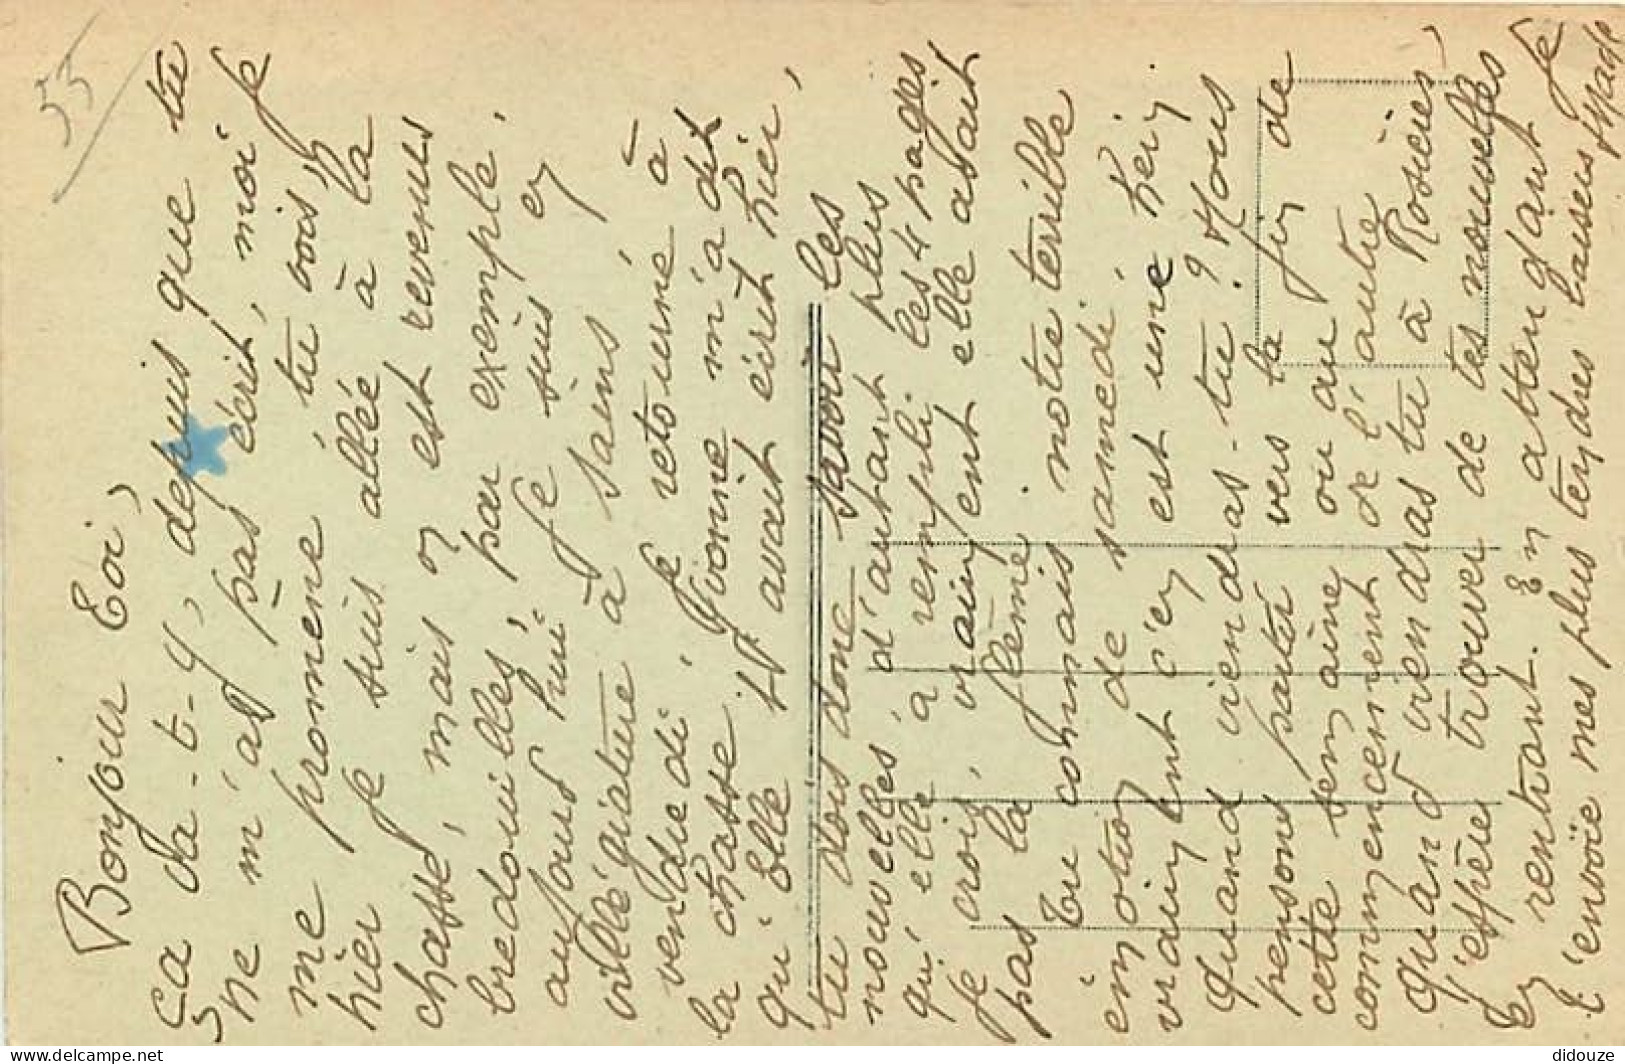 53
Bonjour Toi,
Ça va-t-y, depuis que tu
ne m'as pas écrit, moi je
me promène, tu vois,
hier je suis allée à la
chasse, mais on est revenus
bredouilles, par exemple.
aujourd'hui je suis en
villégiature à Sains,
vendredi. Je retourne à
la chasse. Yvonne m'a dit
qu'elle t'avait écrit hier,
tu dois donc savoir les
nouvelles, d'autant plus
qu'elle a rempli les 4 pages
je crois, vraiment elle avait
pas la flème.
Tu connais notre terrible
émotion de samedi,
vraiment c'en est une hein
Quand viendras-tu ? Nous
pensons partir vers la fin de
cette semaine ou au
commencement de l'autre
Quand viendras tu à Rosières,
J'espère trouver de tes nouvelles
en rentrant. En attendant je
t'envoie mes plus tendres baisers
delcampe.net
didouze